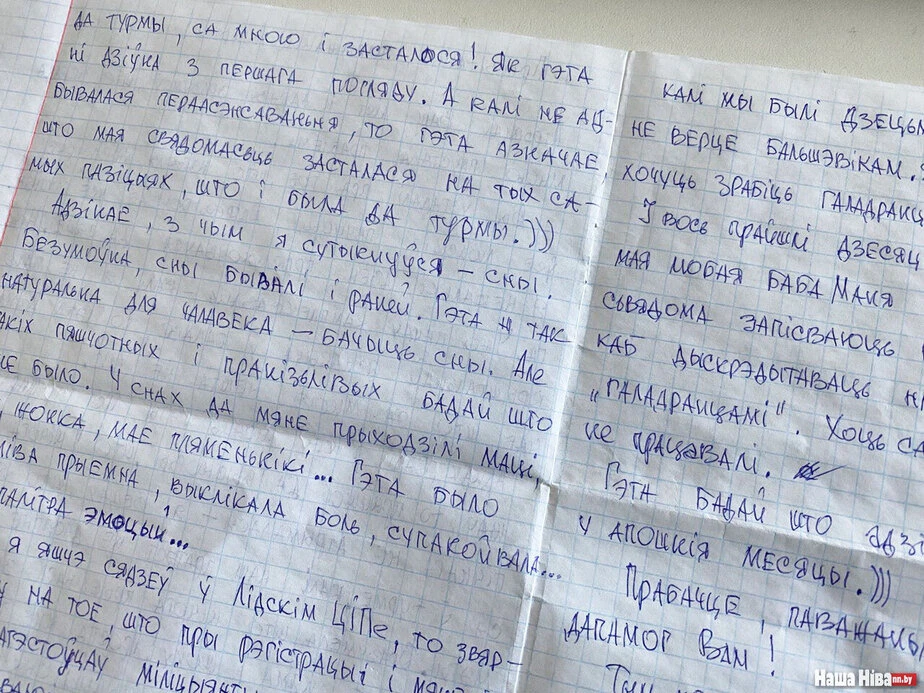 ДА ТУРМЫ, СА МНОЮ І ЗАСТАЛОСЯ! ЯК ГЭТА
НІ ДЗІЎНА З ПЕРШАГА ПОГЛЯДУ. А КАЛІ НЕ АД-
БЫВАЛАСЯ ПЕРААСЭНСАВАНЬНЯ, ТО ГЭТА АЗНАЧАЕ,
ШТО МАЯ СВЯДОМАСЬЦЬ ЗАСТАЛАСЯ НА ТЫХ СА-
МЫХ ПАЗІЦЫЯХ, ШТО І БЫЛА ДА ТУРМЫ.)))
АДЗІНАЕ, З ЧЫМ Я СУТЫКНУЎСЯ – СНЫ.
БЕЗУМОЎНА, СНЫ БЫВАЛІ І РАНЕЙ. ГЭТА Ж ТАК
НАТУРАЛЬНА ДЛЯ ЧАЛАВЕКА – БАЧЫЦЬ СНЫ. АЛЕ
ТАКІХ ПЯШЧОТНЫХ І ПРАНІЗЬЛІВЫХ БАДАЙ ШТО
НЕ БЫЛО. У СНАХ ДА МЯНЕ ПРЫХОДЗІЛІ МАЦІ,
ЖОНКА, МАЕ ПЛЯМЕНЬНІКІ... ГЭТА БЫЛО
ПРЫЕМНА, ВЫКЛІКАЛА БОЛЬ, СУПАКОЙВАЛА...
ПАЛІТРА ЭМОЦЫЙ!...
Я ЯШЧЭ СЯДЗЕЎ У ЛІДСКІМ ЦІПе, ТО ЗВЯР-
НА ТОЕ, ШТО ПРЫ РЭГІСТРАЦЫІ І
МІЛІЦЫЯНТ
КАЛІ МЫ БЫЛІ ДЗЕЦЬМ
НЕ ВЕРЦЕ БАЛЬШЭВІКАМ.
ХОЧУЦЬ ЗРАБІЦЬ ГАЛАДРАНЦ
І ВОСЬ ПРАЙШЛІ ДЗЕСЯЦ
МАЯ ЛЮБАЯ БАБА МАНЯ
СЬВЯДОМА ЗАПІСВАЮЦЬ
КАБ ДЫСКРЭДЫТАВАЦЬ Н
„ГАЛАДРАНЦАМІ". ХОЦЬ СА
НЕ ПРАЦАВАЛІ.
ГЭТА БАДАЙ ШТО АДЗІ
У АПОШНІЯ МЕСЯЦЫ.)))
ПРАБАЧЦЕ, ПАВАЖАНЫ
ДАПАМОГ ВАМ!
Наша Ніва nn.by